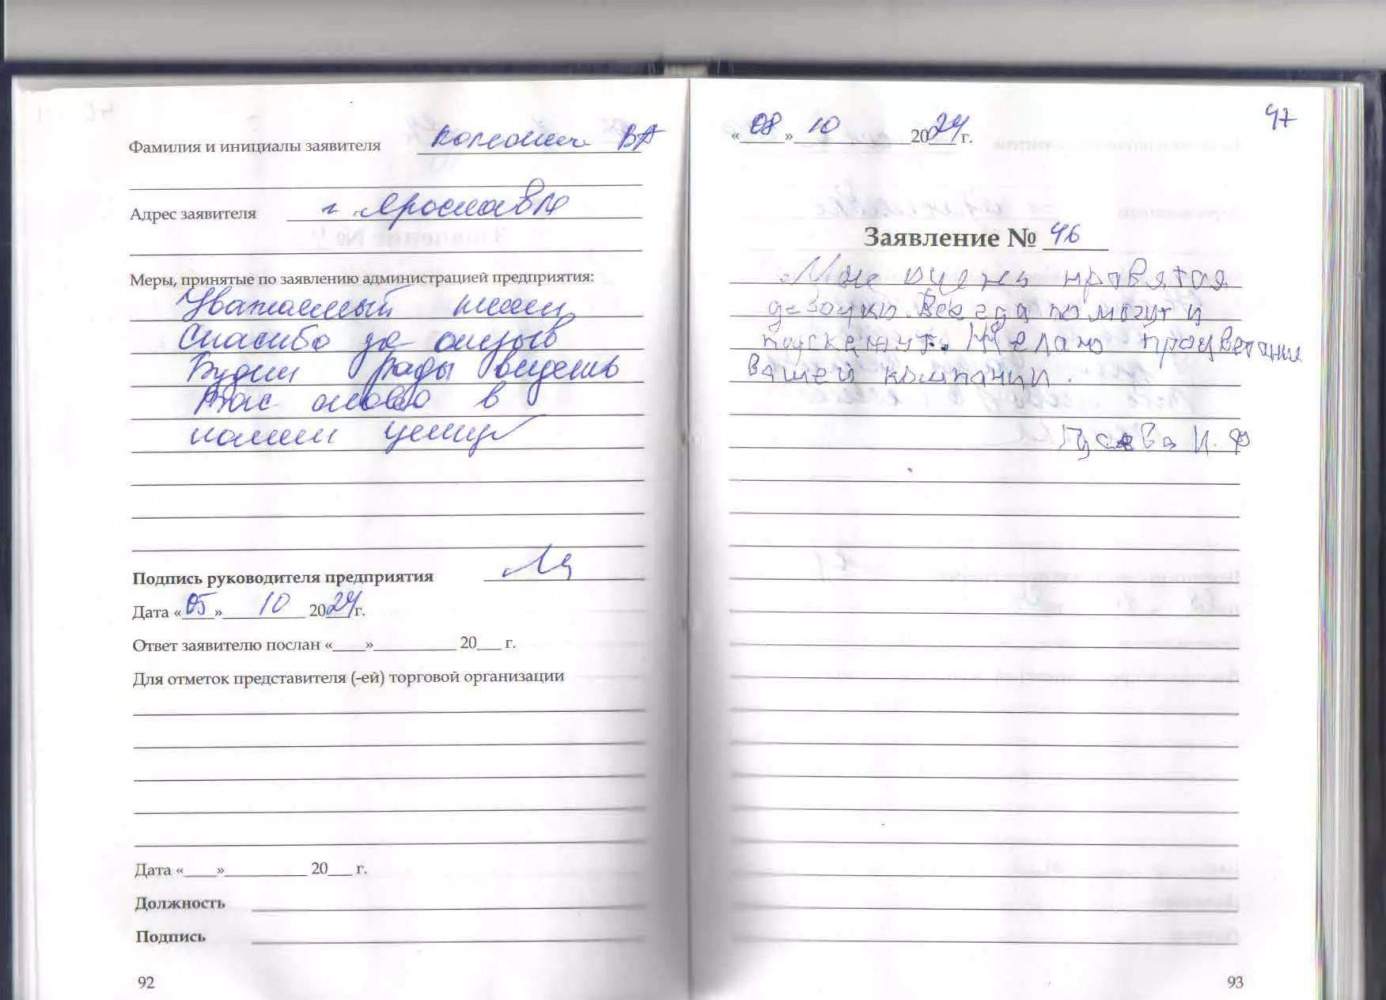 Фамилия и инициалы заявителя ВА
Адрес заявителя г. Ярославль
Меры, принятые по заявлению администрацией предприятия:
Уважаемый
Спасибо за отзыв
Будем рады видеть
Вас снова в
нашем центре
Подпись руководителя предприятия
Дата «05» 10 2024г.
Ответ заявителю послан «___» 20___ г.
Для отметок представителя (-ей) торговой организации
Дата «___» 20___ г.
Должность
Подпись
92
47
«08» 10 2024г.
Заявление № 46
Мне очень нравятся
девочки Всегда помогут и
подскажут. Желаю процветания
вашей компании.
Гусева И. Ф
93